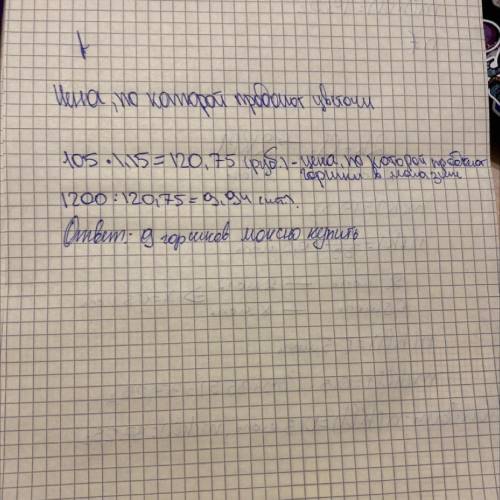 Цена, по которой продают цветочн
105 · 1,15 = 120,75 (руб.) - цена, по которой продают
горшки в магазине
1200 : 120,75 = 9,94 (шт).
Ответ: 9 горшков можно купить